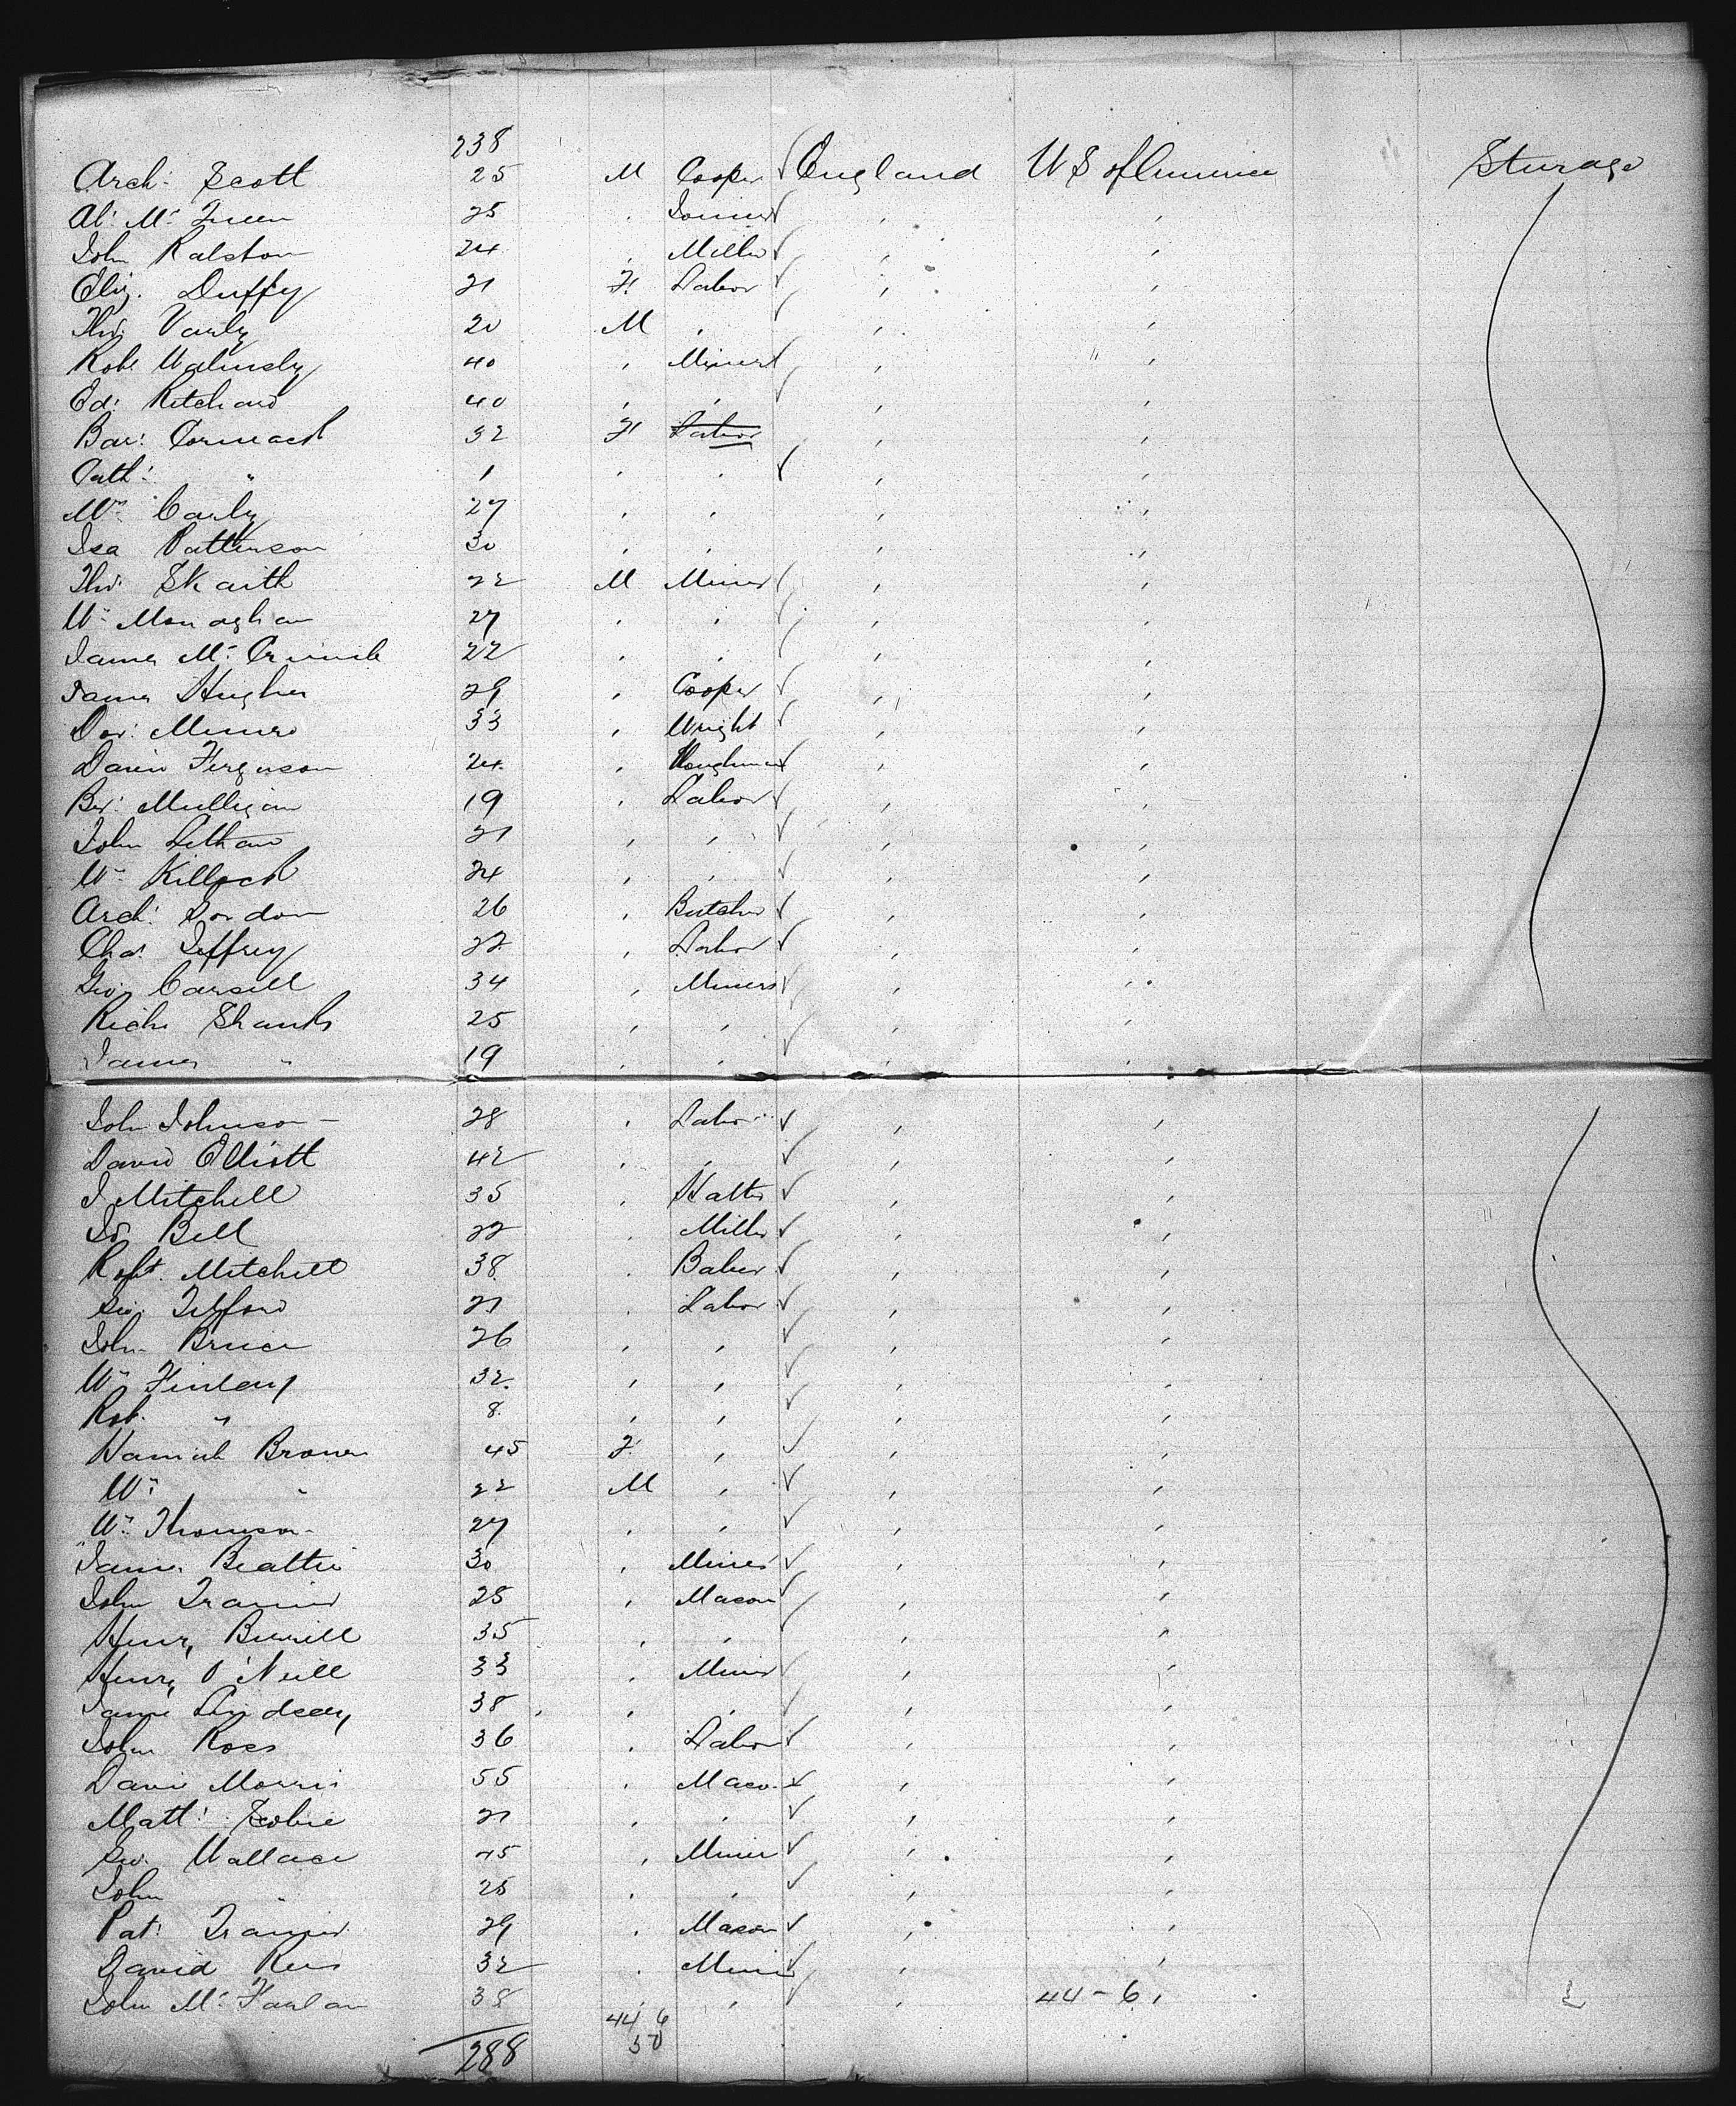 238
Arch: Scott 25 M Cooper England U S of America Sturage
Al: Mc Queen 25 " Joiner " "
John Ralston 24 " Miller " "
Eliz. Duffy 21 F. Labor " "
Tho: Varly 20 M " " "
Robt Walmsly 40 " Miners " "
Ed: Ritchard 40 " " " "
Bar: Cormack 32 F Labor " "
Cath: " 1 " " " "
Mrs Carly 27 " " " "
Isa Patterson 30 " " " "
Tho: Skaith 22 M Miner " "
Wm Monaghan 27 " " " "
James Mc 22 " " " "
James Hughes 29 " Cooper " "
Dav: Munro 33 " Wright " "
David Ferguson 24 " Ploughman " "
Ber: Mulligan 19 " Labor " "
John 21 " " " "
Wm Killoch 24 " " " "
Arch: Gordon 26 " Butcher " "
Chas. Jeffrey 22 " Labor " "
Geo: Carsell 34 " Miners " "
Richd Shanks 25 " " " "
James " 19 " " " "
John Johnson 28 " Labor " "
David Elliott 42 " " " "
J Mitchell 35 " Hatter " "
Bell 22 " Miller " "
Robt. Mitchell 38 " Baker " "
Geo: Telford 21 " Labor " "
John Bruce 26 " " " "
Wm Finlay 32 " " " "
Rob. " 8 " " " "
Hannah Brown 45 F. " " "
Wm " 22 M " " "
Wm Thomson 27 " " " "
James Beattie 30 " Miner " "
John Trainer 25 " Mason " "
Henry Burrill 35 " " " "
Henry O'Neill 33 " Miner " "
James Lindsay 38 " " " "
John Ross 36 " Labor " "
David Morris 55 " Mason " "
Matt: 21 " " " "
Geo: Wallace 45 " Miner " "
John " 25 " " " "
Pat: Trainer 29 " Mason " "
David Rees 32 " Miner " "
John Mc Farlan 38 " " " 44-6 "
44 6
50
288